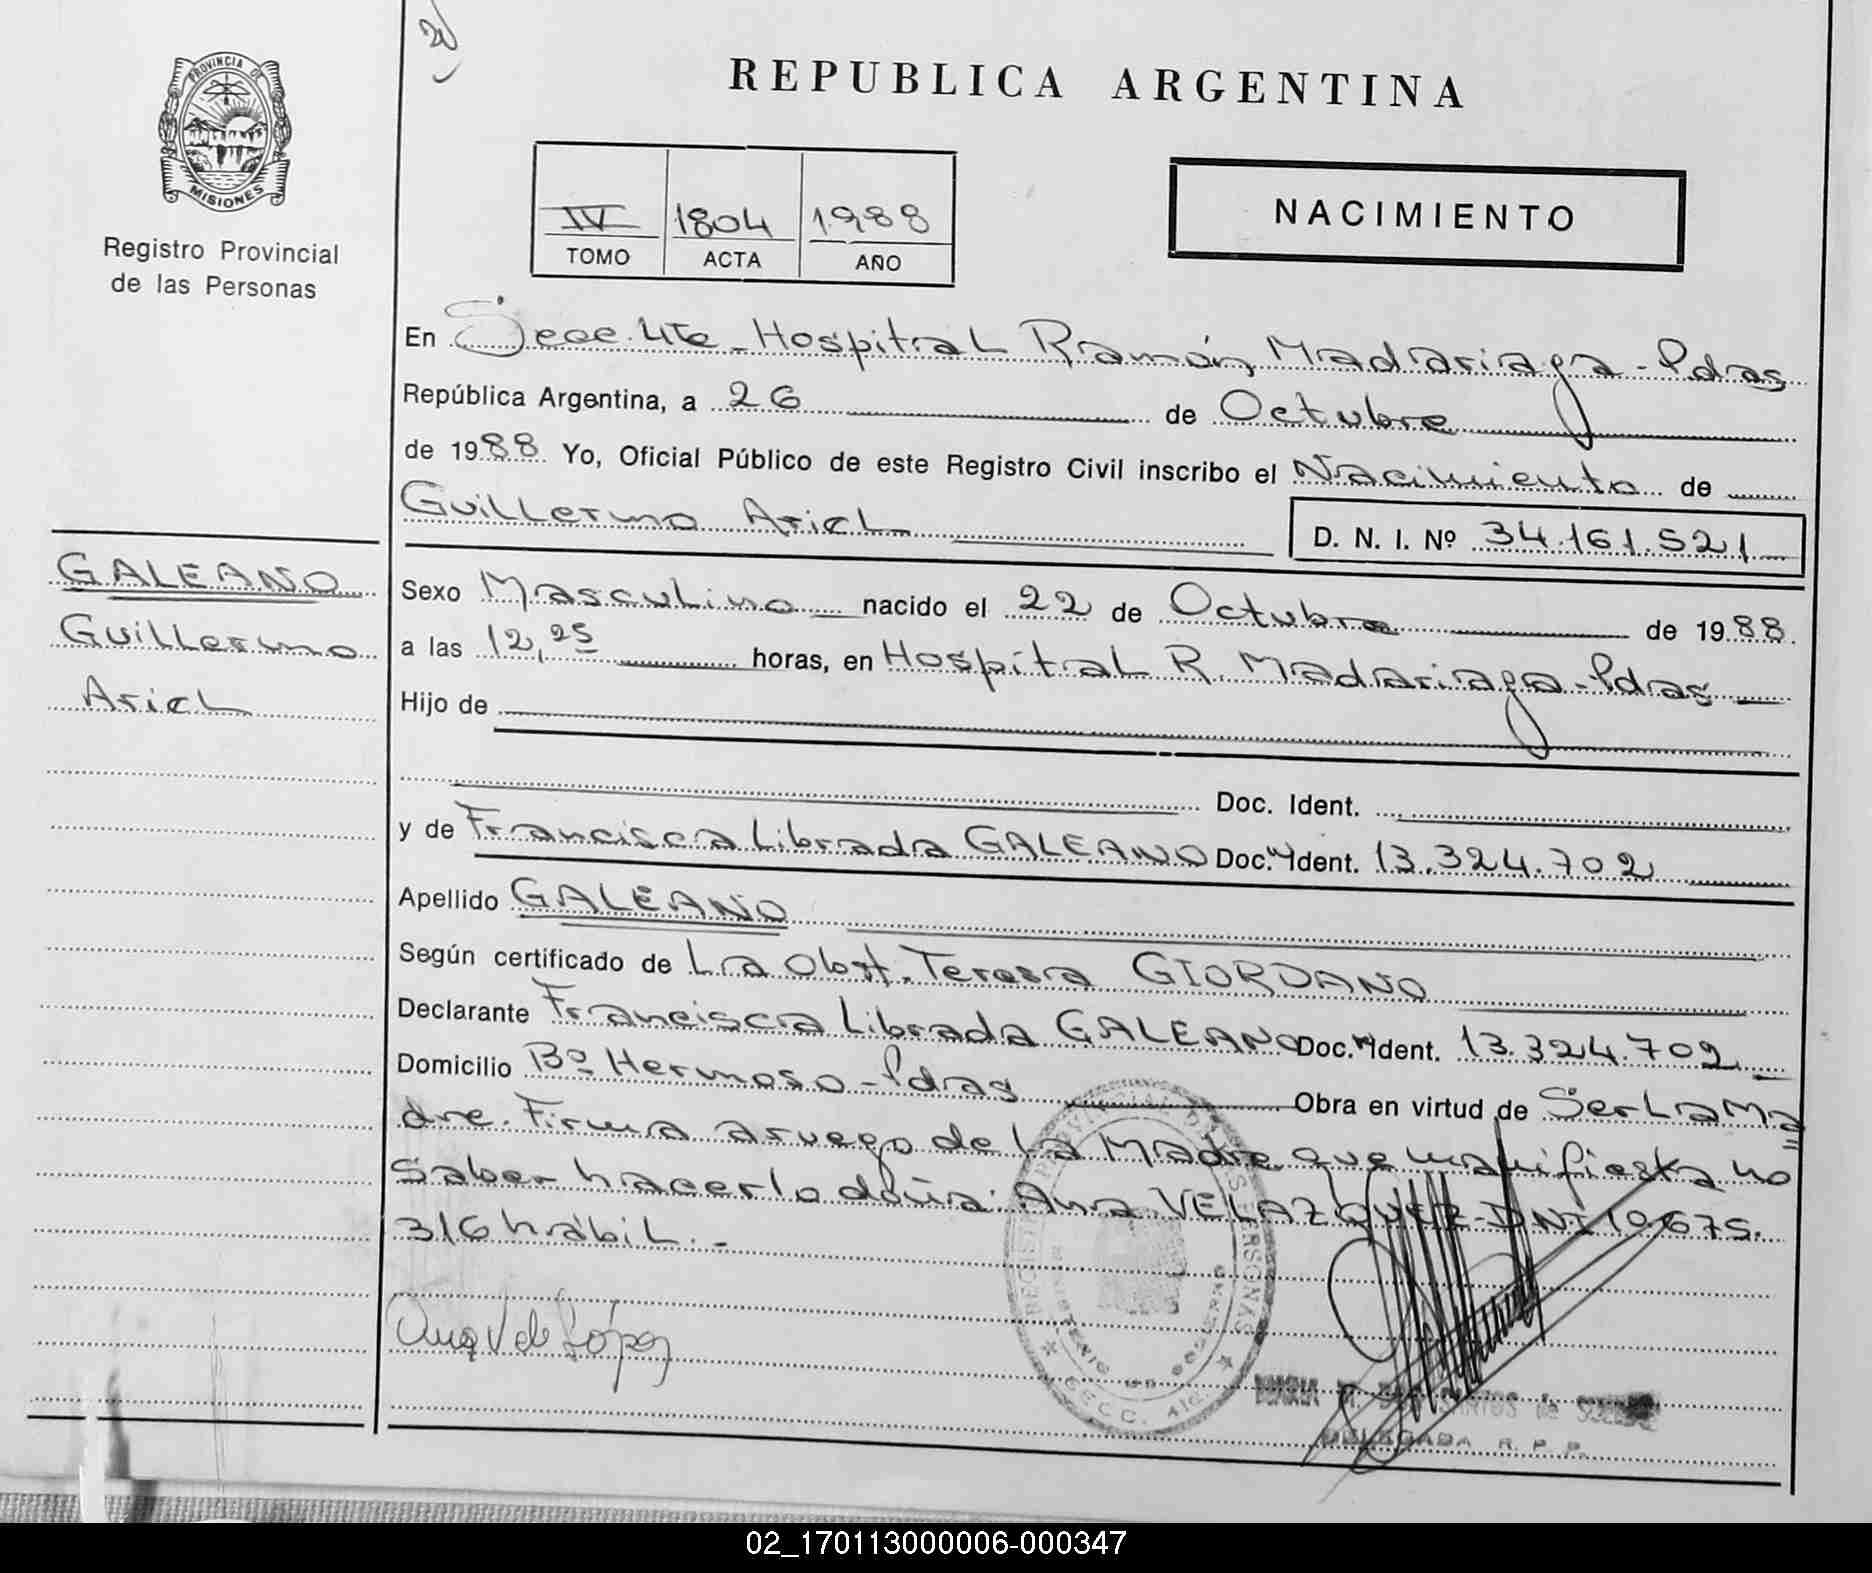 REPUBLICA ARGENTINA
PROVINCIA DE
MISIONES
Registro Provincial
de las Personas
IV 1804 1988
TOMO ACTA AÑO
NACIMIENTO
En Secc. 4ta - Hospital Ramón Madariaga - Pdas
República Argentina, a 26 de Octubre
de 1988 Yo, Oficial Público de este Registro Civil inscribo el Nacimiento de
Guillermo Ariel D. N. I. Nº 34.161.521
GALEANO
Guillermo
Ariel
Sexo Masculino nacido el 22 de Octubre de 1988.
a las 12,25 horas, en Hospital R. Madariaga - Pdas
Hijo de
Doc. Ident.
y de Francisca Librada GALEANO Doc. Ident. 13.324.702
Apellido GALEANO
Según certificado de La Obst. Teresa GIORDANO
Declarante Francisca Librada GALEANO Doc. Ident. 13.324.702
Domicilio Bº Hermoso - Pdas Obra en virtud de Ser La Ma
dre. Firma a ruego de la Madre que manifiesta no
Saber hacerlo doña: Ana VELAZQUEZ - DNI 10.675.
316 hábil. -
Ana V de López
REGISTRO PROVINCIAL DE LAS PERSONAS
MINISTERIO DE GOBIERNO
SECC. 4ta
SANTOS de
DELEGADA R. P. P.
02_170113000006-000347